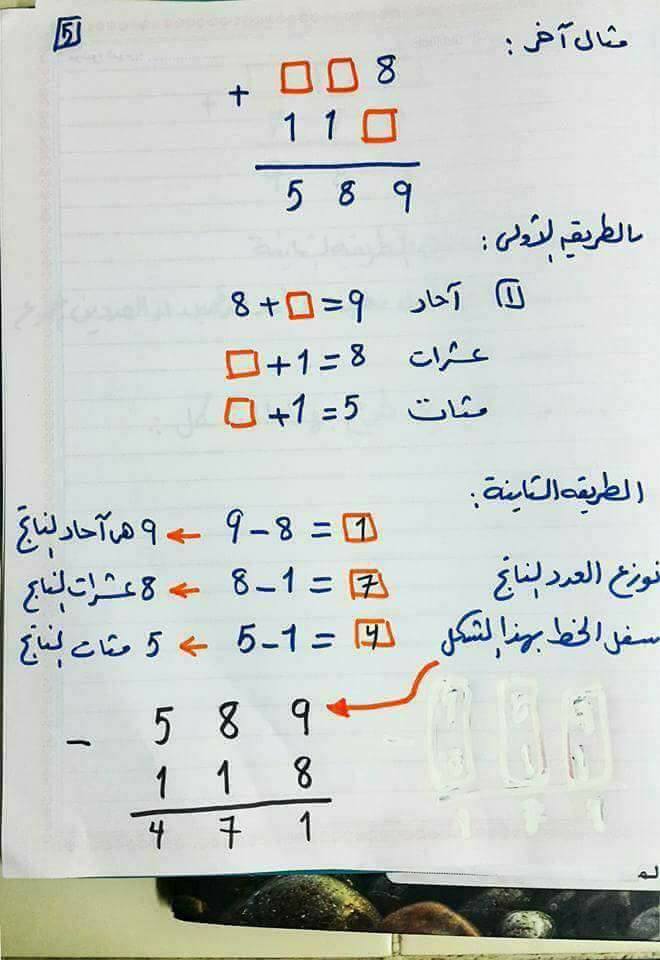 5
مثال آخر:
+ □ □ 8
1 1 □
5 8 9
بالطريقه الأولى:
1 آحاد 8 + □ = 9
عشرات □ + 1 = 8
مئات □ + 1 = 5
الطريقه الثانية:
9 - 8 = 1 ← 9 هي آحاد الناتج
نوزع العدد الناتج 8 - 1 = 7 ← 8 عشرات الناتج
سفل الخط بهذا الشكل 5 - 1 = 4 ← 5 مئات الناتج
- 5 8 9
1 1 8
4 7 1